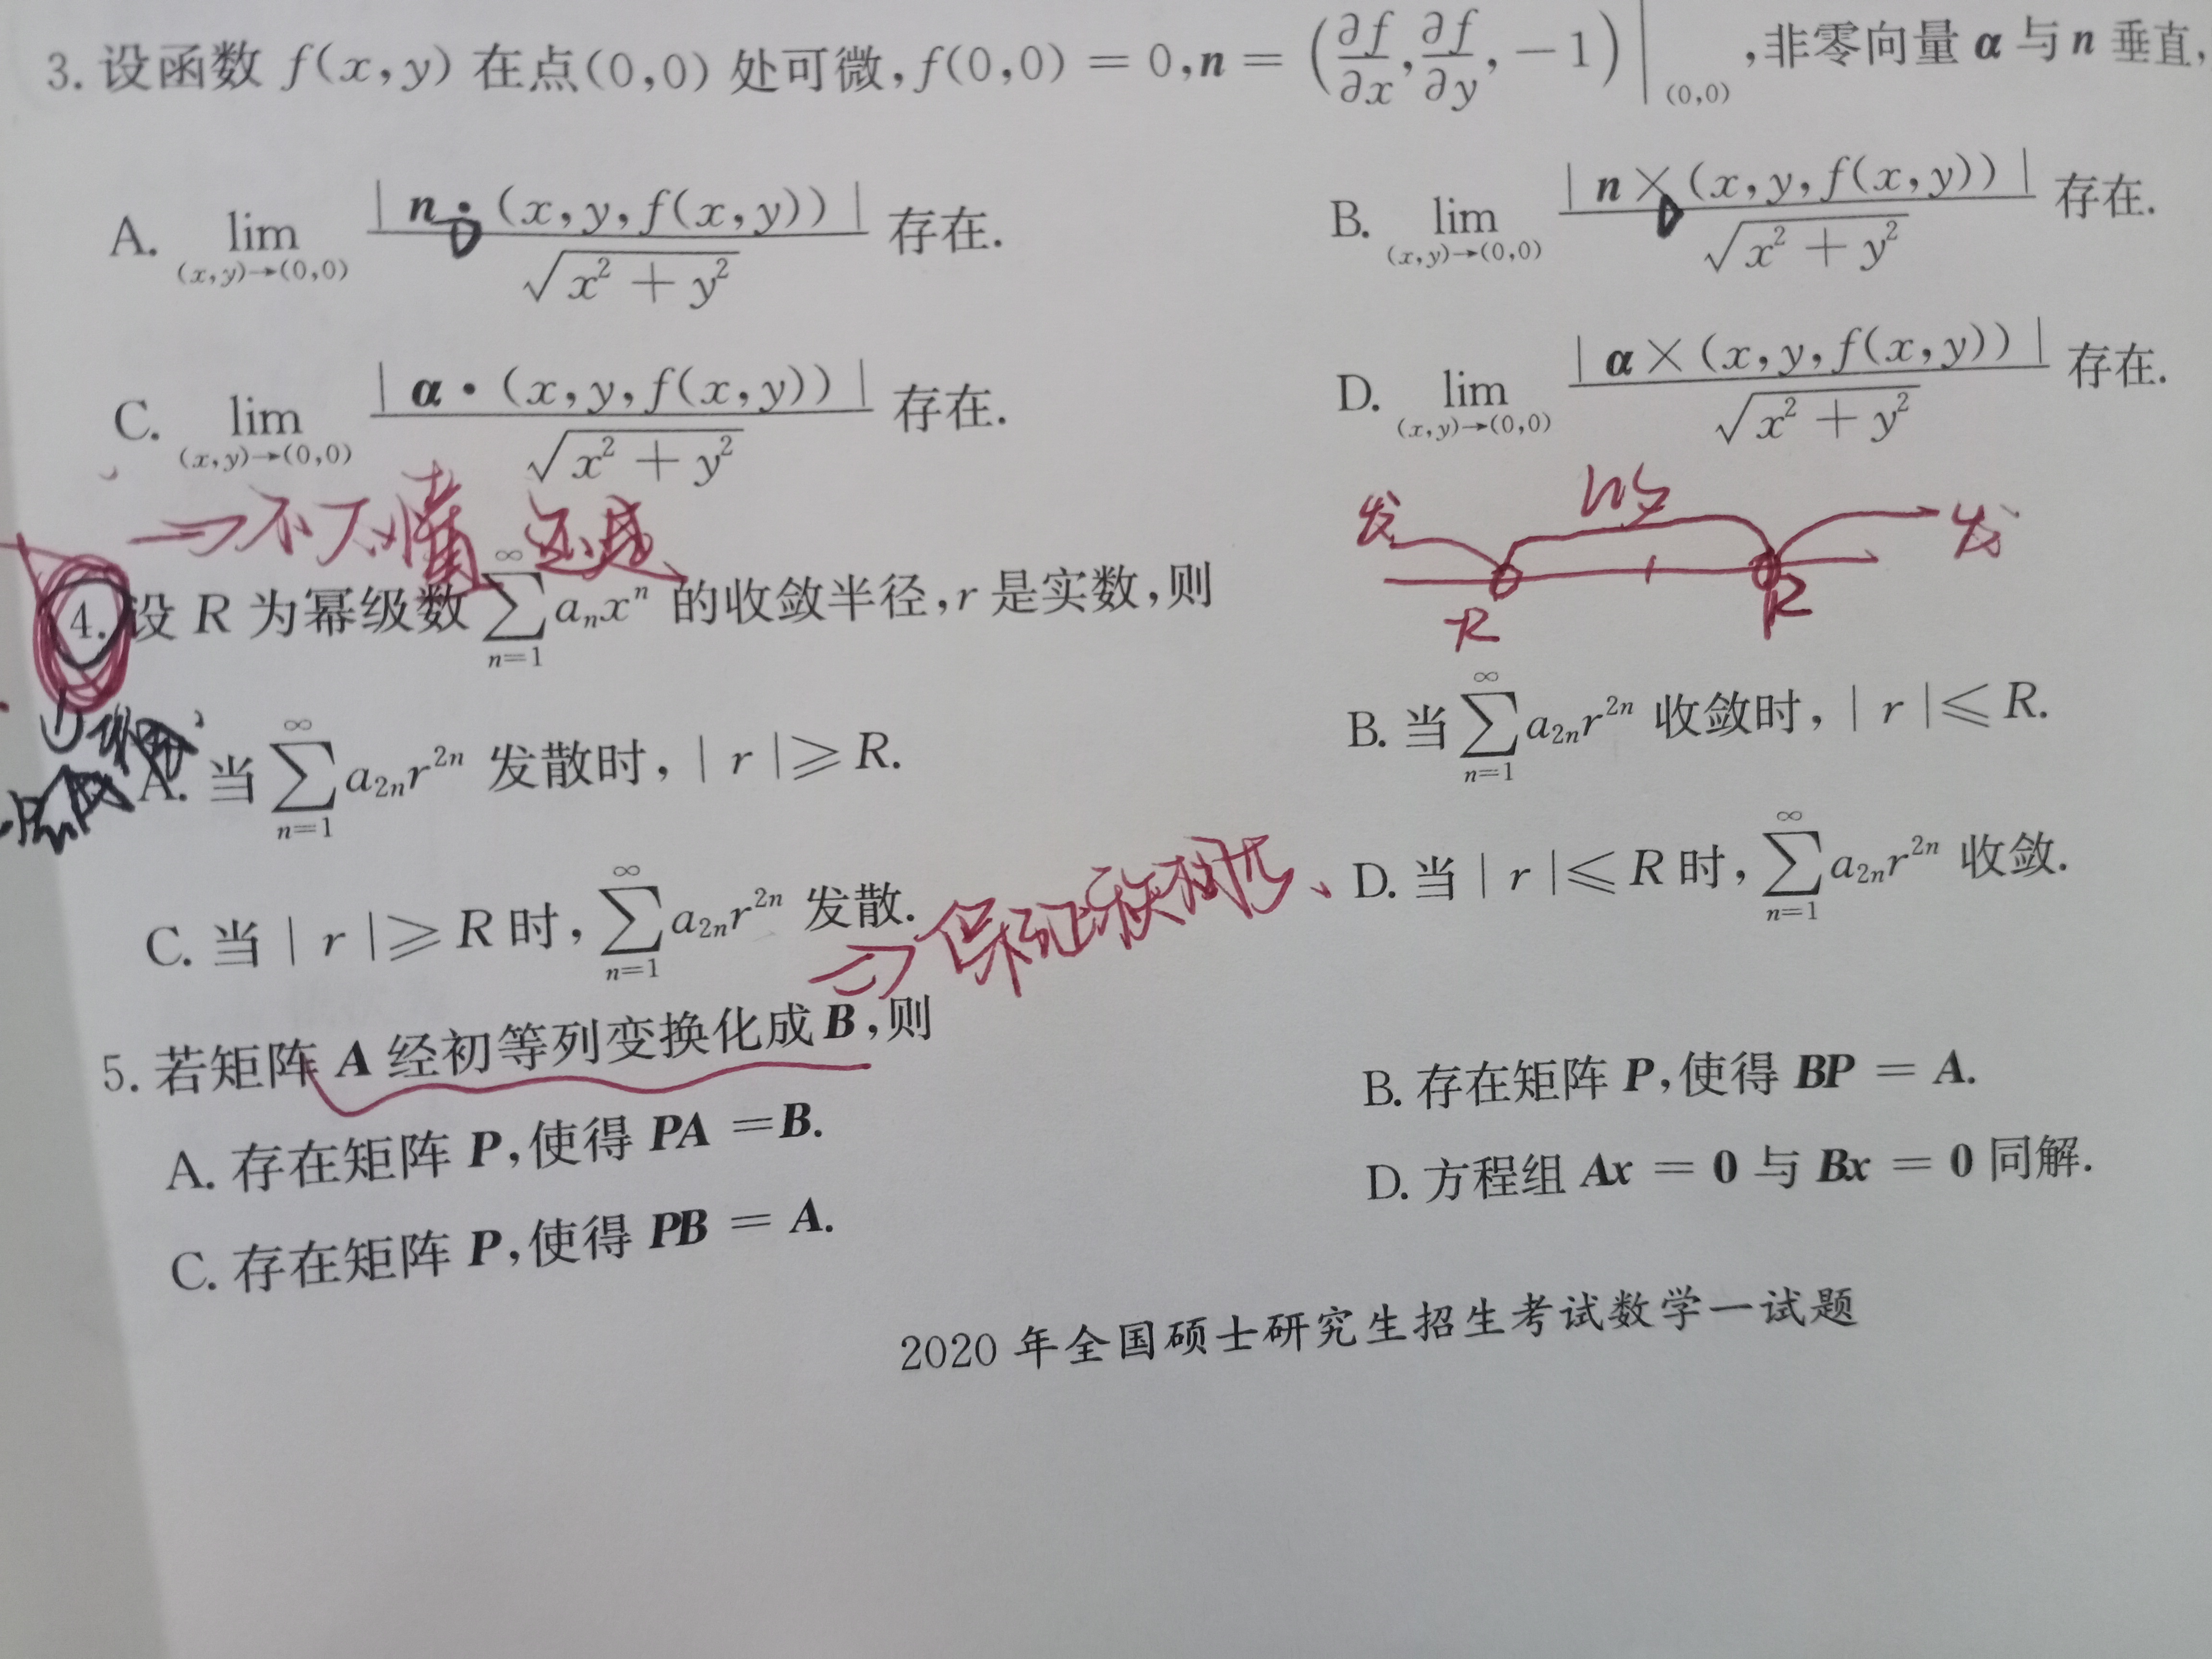 3. 设函数 f(x,y) 在点(0,0) 处可微,f(0,0) = 0,n = (∂f/∂x, ∂f/∂y, −1)|(0,0) ,非零向量 α 与 n 垂直,
A. lim (x,y)→(0,0) | n · (x,y,f(x,y)) | / √(x² + y²) 存在.
B. lim (x,y)→(0,0) | n × (x,y,f(x,y)) | / √(x² + y²) 存在.
C. lim (x,y)→(0,0) | α · (x,y,f(x,y)) | / √(x² + y²) 存在.
D. lim (x,y)→(0,0) | α × (x,y,f(x,y)) | / √(x² + y²) 存在.
发 发
R R
4. 设 R 为幂级数 ∑_{n=1}^{∞} aₙxⁿ 的收敛半径,r 是实数,则
A. 当 ∑_{n=1}^{∞} a₂ₙr²ⁿ 发散时, | r | ⩾ R.
B. 当 ∑_{n=1}^{∞} a₂ₙr²ⁿ 收敛时, | r | ⩽ R.
C. 当 | r | ⩾ R 时, ∑_{n=1}^{∞} a₂ₙr²ⁿ 发散.
D. 当 | r | ⩽ R 时, ∑_{n=1}^{∞} a₂ₙr²ⁿ 收敛.
5. 若矩阵 A 经初等列变换化成 B,则
A. 存在矩阵 P,使得 PA = B.
B. 存在矩阵 P,使得 BP = A.
C. 存在矩阵 P,使得 PB = A.
D. 方程组 Ax = 0 与 Bx = 0 同解.
2020 年全国硕士研究生招生考试数学一试题